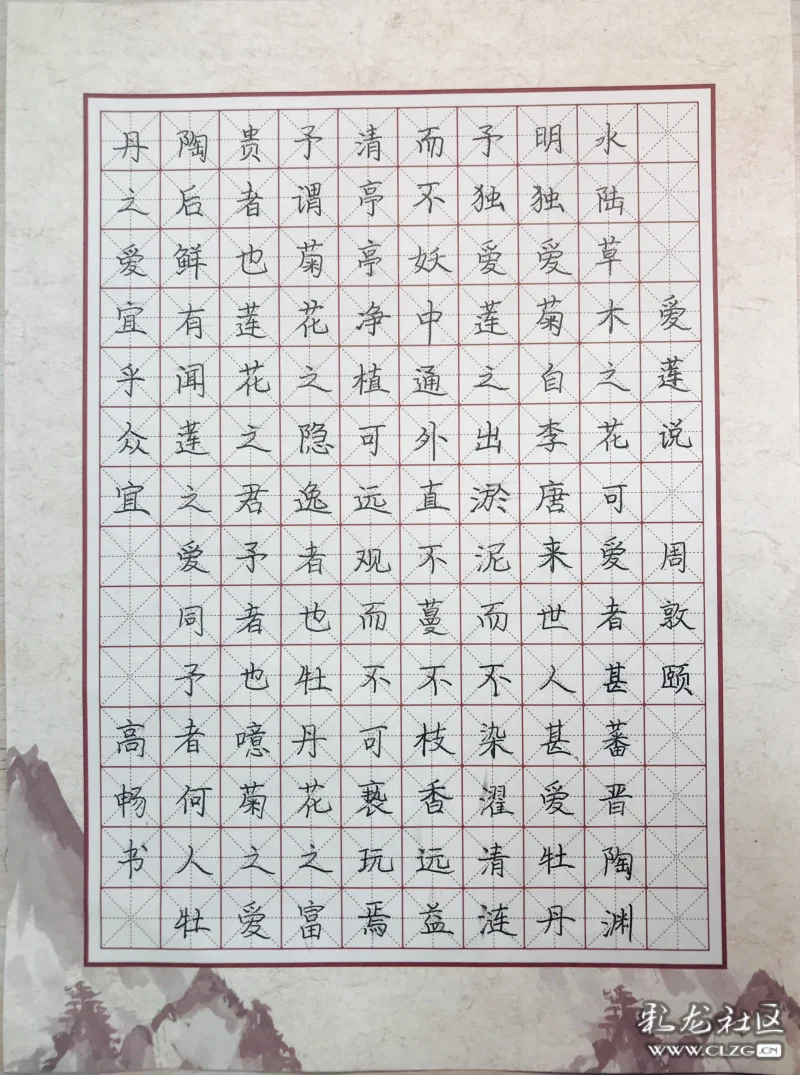 爱莲说 周敦颐
水陆草木之花可爱者甚蕃晋陶渊
明独爱菊自李唐来世人甚爱牡丹
予独爱莲之出淤泥而不染濯清涟
而不妖中通外直不蔓不枝香远益
清亭亭净植可远观而不可亵玩焉
予谓菊花之隐逸者也牡丹花之富
贵者也莲花之君予者也噫菊之爱
陶后鲜有闻莲之爱同予者何人牡
丹之爱宜乎众宜 高畅书
彩龙社区
WWW.CLZG.CN